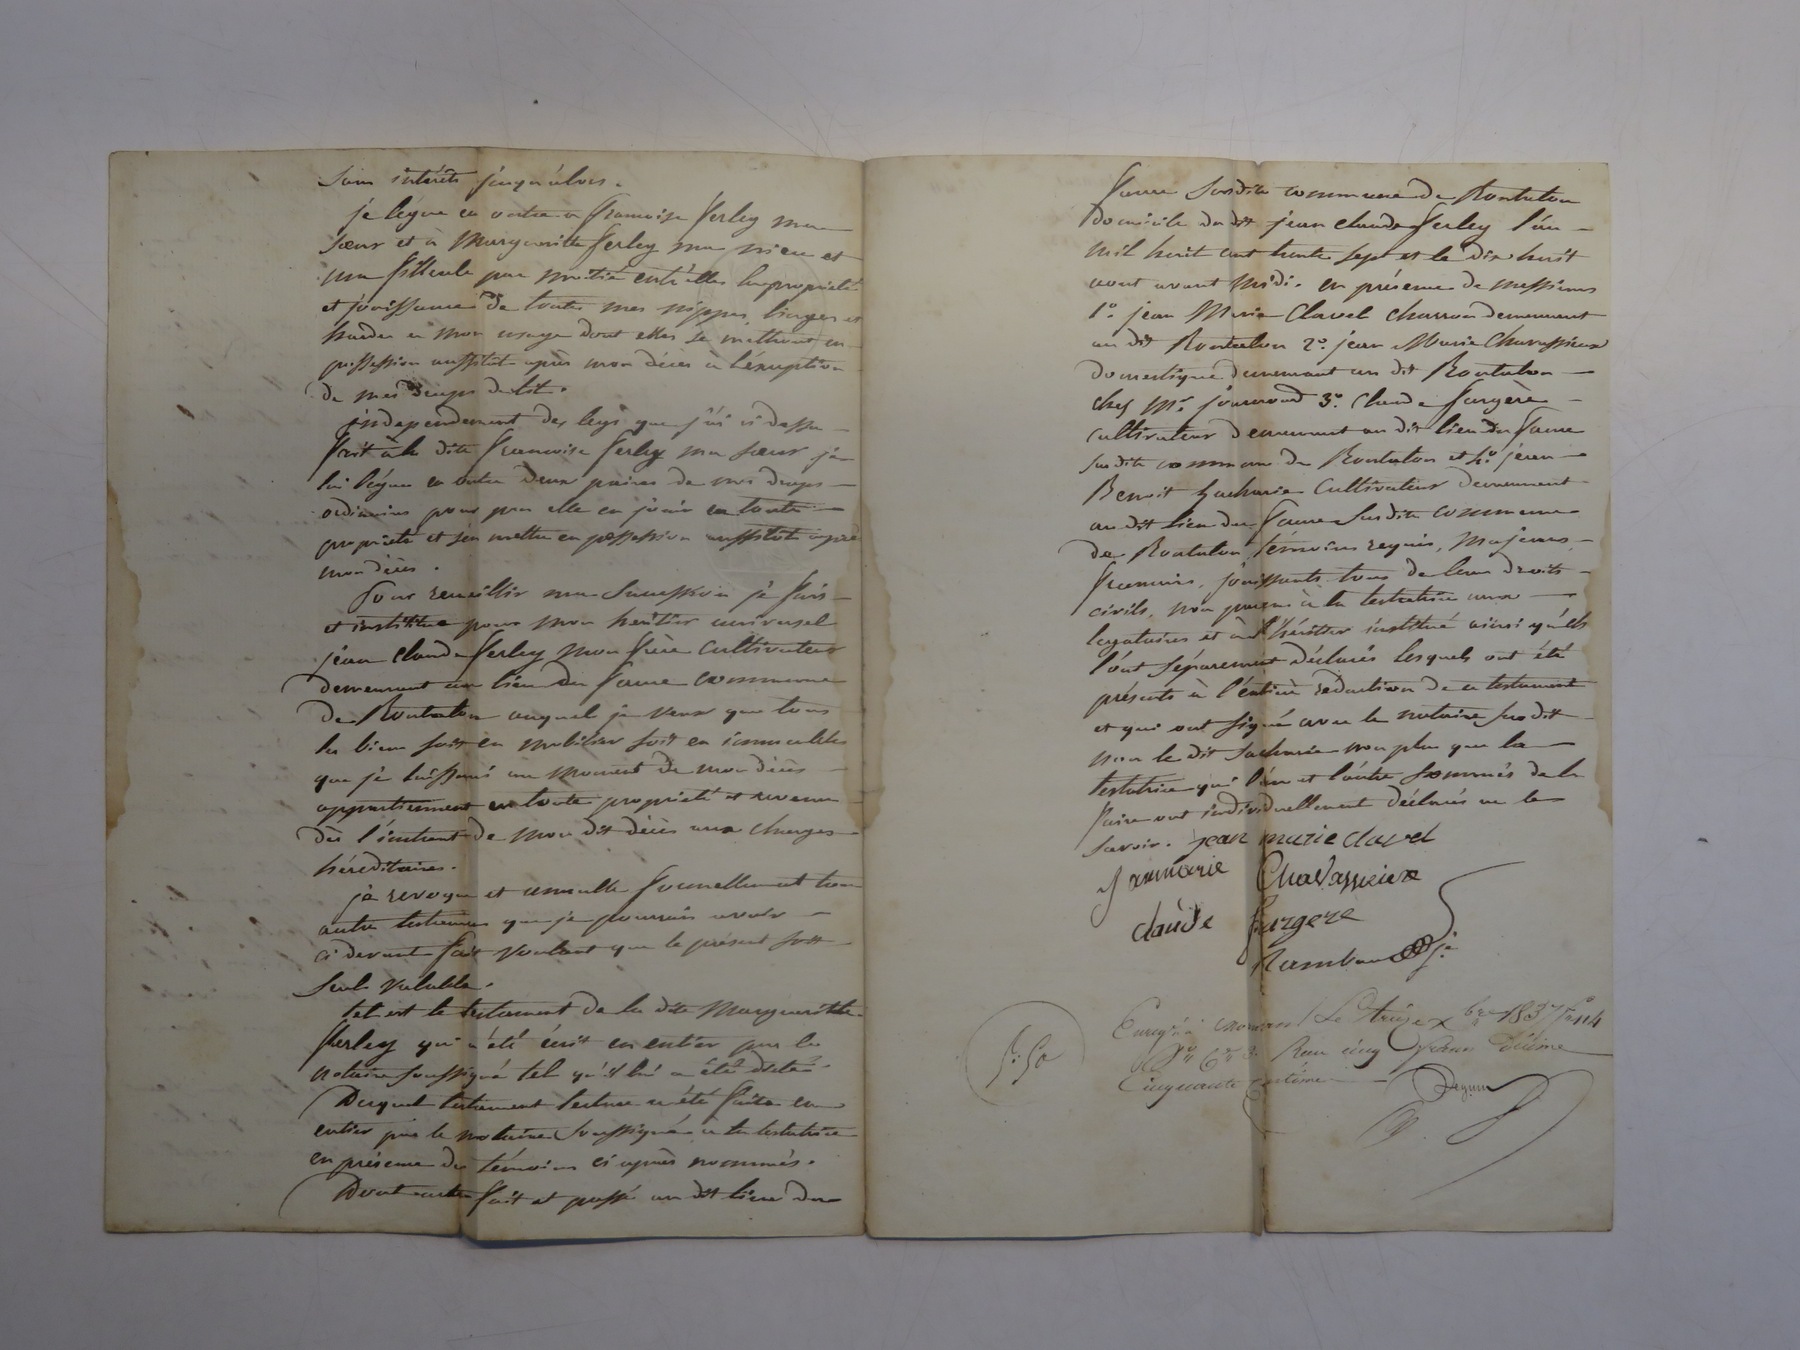 Sans intérêts jusqu'alors.
je légue en outre a françoise ferley ma
sœur et à Marguerite ferley ma niece et
ma filleule par moitié entr'elles la propriété
et jouissance de toutes mes nippes, linges et
hardes a mon usage dont elles se mettront en
possession aussitôt après mon décès à l'exception
de mes draps de lit.
independament des legs que j'ai ci dessus
fait à la dite francoise ferley ma sœur je
lui légue en outre deux paires de mes draps
ordinaires pour par elle en jouir en toute
propriété et s'en mettre en possession aussitôt après
mon décès.
Pour recueillir ma Succession je fais
et institue pour mon heritier universel
jean claude ferley mon frère Cultivateur
demeurant au lieu du faure commune
de Rontalon auquel je veux que tous
les biens soit en mobilier soit en immeubles
que je laisserai au moment de mon décès
appartiennent en toute propriété et revenu
dès l'instant de mon dit décès aux charges
héréditaires.
je revoque et annulle formellement tous
autre testament que je pourrais avoir
ci devant fait voulant que le présent soit
seul valable.
tel est le testament de la dite Marguerithe
ferley qui a été écrit en entier par le
notaire soussigné tel qu'il lui a été dicté.
Duquel testament lecture a été faite en
entier par le notaire soussigné a la testatrice
en présence des témoins ci après nommés.
Dont acte fait et passé au dit lieu du
faure susdite commune de Rontalon
domicile du dit jean claude ferley l'an
mil huit cent trente sept et le dix huit
aout avant midi. en présence de messieurs
1.° jean Marie Clavel charron demeurant
au dit Rontalon 2.° jean Marie Chavassieux
domestique demeurant au dit Rontalon
chez Mr. 3.° Claude fargère
Cultivateur demeurant au dit lieu du faure
susdite commune de Rontalon et 4.° jean
Benoit Zacharie Cultivateur demeurant
au dit lieu du faure susdite commune
de Rontalon, témoins requis, majeurs,
francais, jouissants tous de leurs droits
civils, non parens à la testatrice aux
legataires et à l'héritier institué ainsi qu'ils
l'ont séparement déclarés lesquels ont été
présents à l'entière rédaction de ce testament
et qui ont signé avec le notaire susdit
non le dit Zacharie non plus que la
testatrice qui l'un et l'autre sommés de le
faire ont individuellement déclarés ne le
savoir. jean marie clavel
Janmarie Chavassieux
claude fargere
5: 50
1837
cinq francs décime
Cinquante centimes